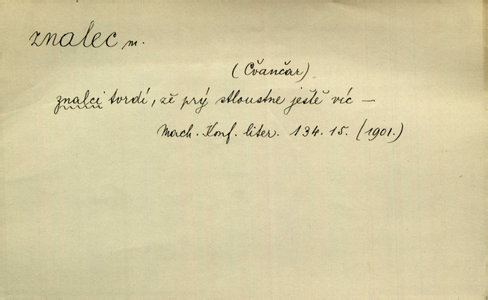 znalec m.
(Čvančar)
znalci tvrdí, že prý stloustne ještě víc —
Mach. Konf. liter. 134.15. (1901.)